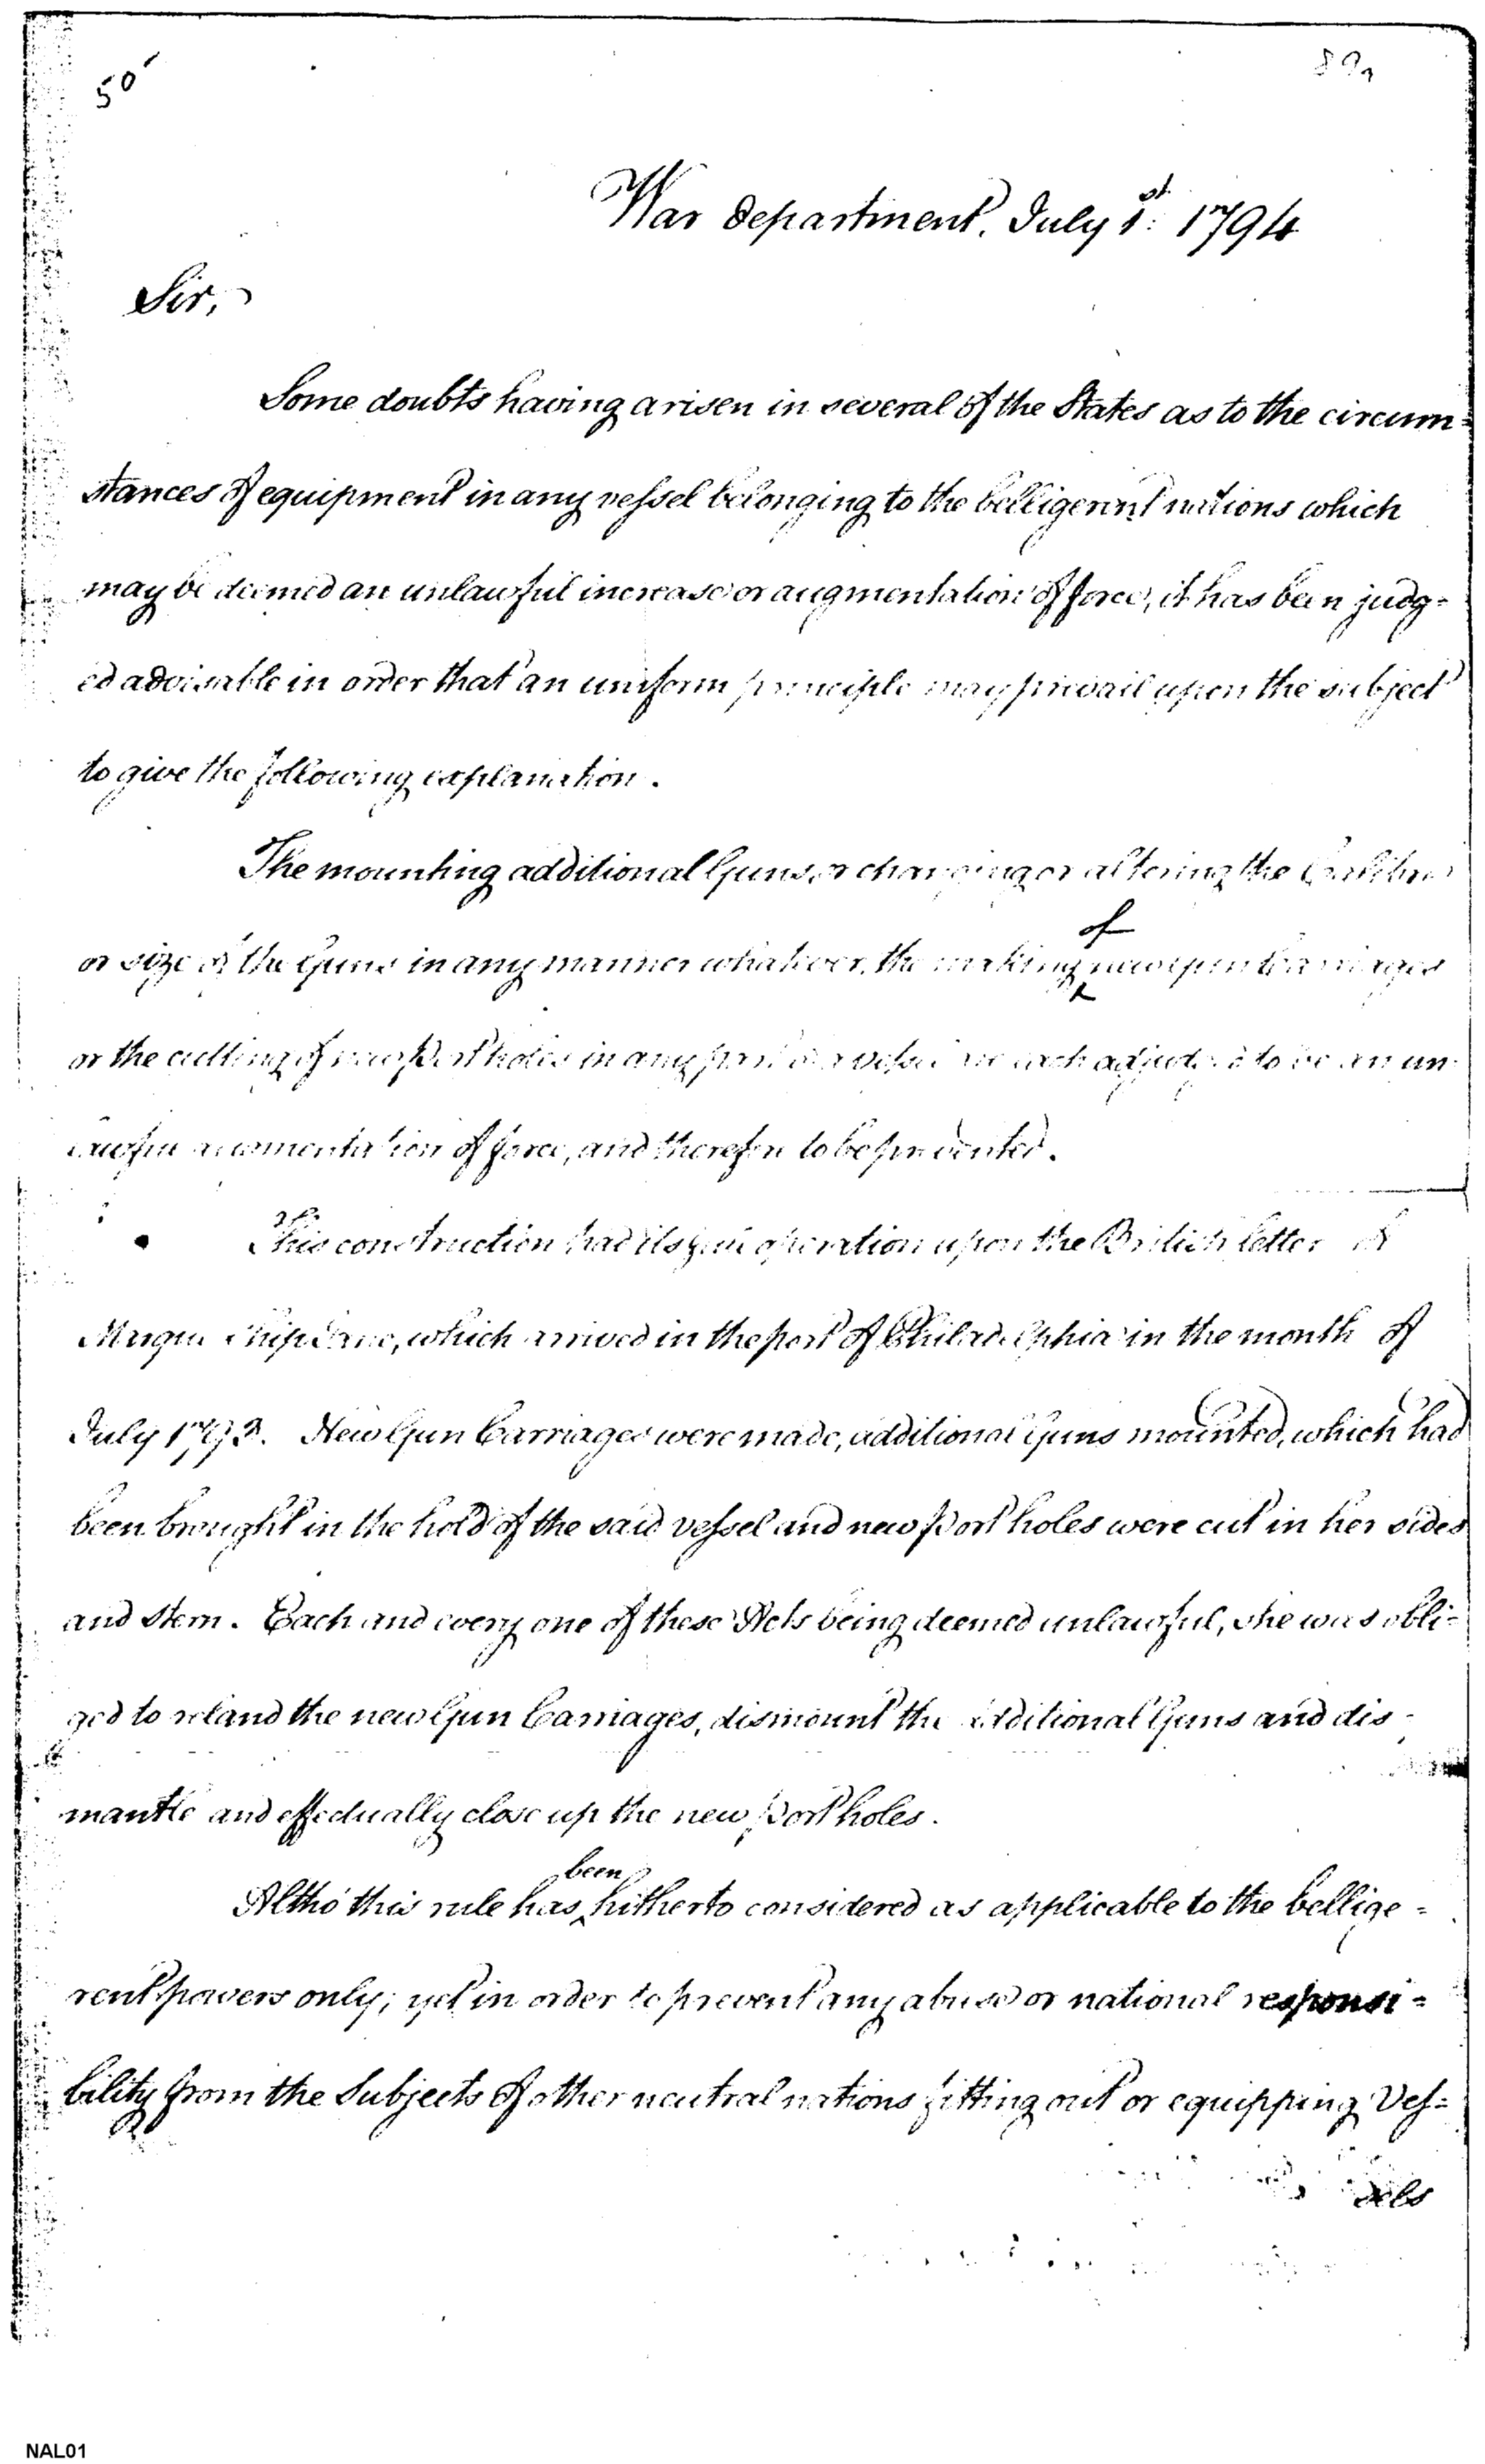 50
War department, July 1st: 1794
Sir,
Some doubts having arisen in several of the States as to the circum=
stances of equipment in any vessel belonging to the belligerent nations which
may be deemed an unlawful increase or augmentation of force, it has been judg=
ed adviseable in order that an uniform principle may prevail upon the subject
to give the following explanation.
The mounting additional Guns, or changing or altering the Calibre
of
or size of the Guns in any manner whatever, the making new gun Carriages
or the cutting of new Port holes in any part of a vessel are each adjudged to be an un-
lawful augmentation of force, and therefore to be prevented.
This construction had its full operation upon the British letter of
Marque Ship Jane, which arrived in the port of Philadelphia in the month of
July 1793. New Gun Carriages were made, additional Guns mounted, which had
been brought in the hold of the said vessel and new Port holes were cut in her sides
and stern. Each and every one of these Acts being deemed unlawful, she was obli=
ged to reland the new Gun Carriages, dismount the additional Guns and dis-
mantle and effectually close up the new Port holes.
been
Altho' this rule has hitherto considered as applicable to the bellige=
rent powers only; yet in order to prevent any abuse or national responsi=
bility from the Subjects of other neutral nations fitting out or equipping Ves=
sels
NAL01